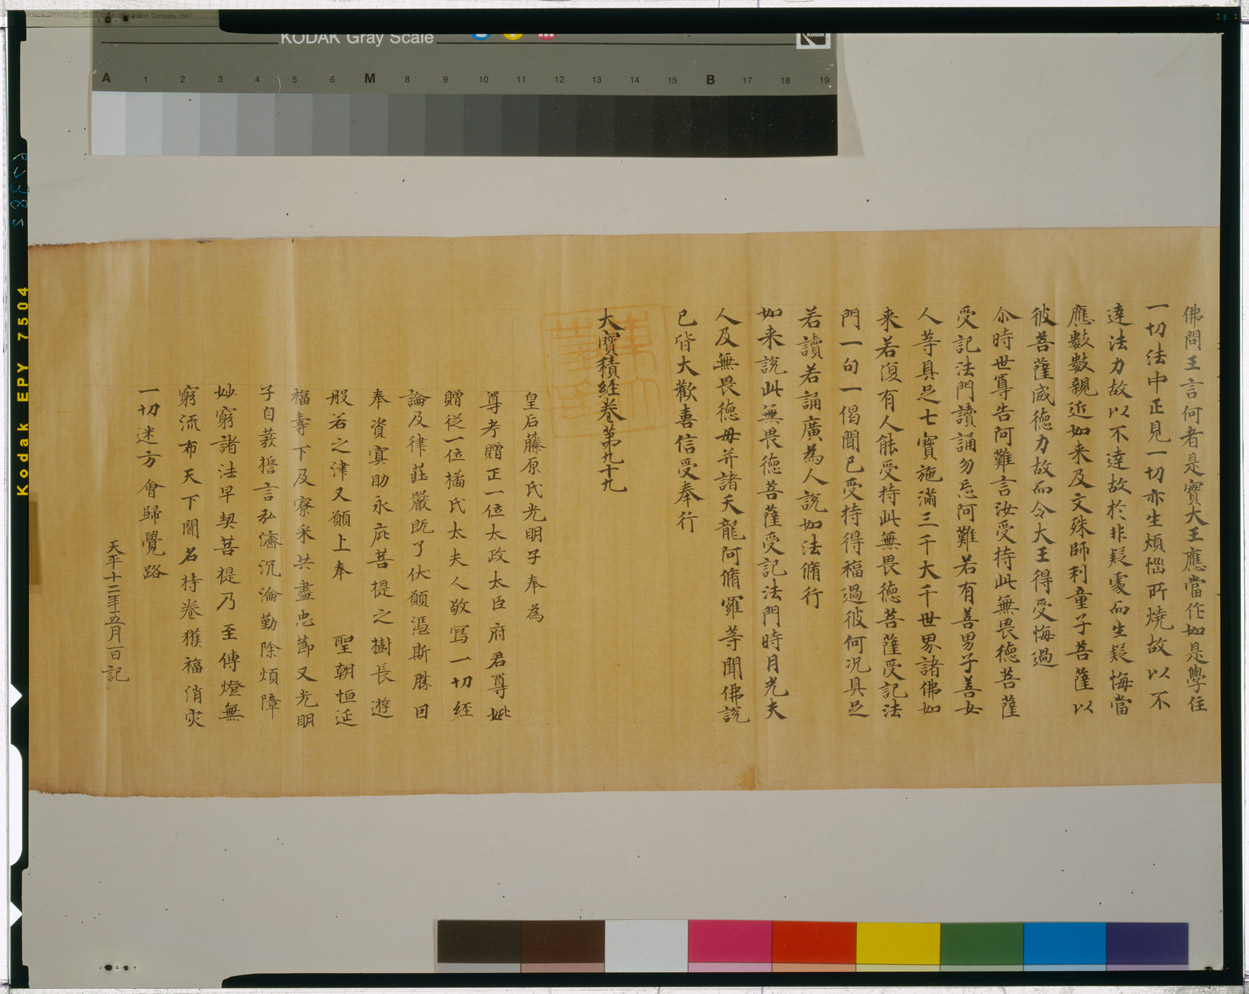 佛問王言何者是實大王應當作如是學住
一切法中正見一切亦生煩惱所燒故以不
達法力故以不達故於非疑處而生疑悔當
應數數親近如来及文殊師利童子菩薩以
彼菩薩威德力故而令大王得受悔過
尒時世尊告阿難言汝受持此無畏德菩薩
受記法門讀誦勿忘阿難若有善男子善女
人等具足七寶施滿三千大千世界諸佛如
来若復有人能受持此無畏德菩薩受記法
門一句一偈聞已受持得福過彼何況具足
若讀若誦廣為人說如法脩行
如来說此無畏德菩薩受記法門時月光夫
人及無畏德母并諸天龍阿脩羅等聞佛說
已皆大歡喜信受奉行
大寶積經卷第九十九
皇后藤原氏光明子奉為
尊考贈正一位太政太臣府君尊妣
贈従一位橘氏太夫人敬寫一切経
論及律莊嚴既了伏願憑斯勝因
奉資冥助永庇菩提之樹長遊
般若之津又願上奉 聖朝恒延
福壽下及寮采共盡忠節又光明
子自發誓言弘濟沉淪勤除煩障
妙窮諸法早契菩提乃至傳燈無
窮流布天下聞名持卷獲福消灾
一切迷方會歸覺路
天平十二年五月一日記
KODAK Gray Scale
A 1 2 3 4 5 6 M 8 9 10 11 12 13 14 15 B 17 18 19
Kodak EPY 7504